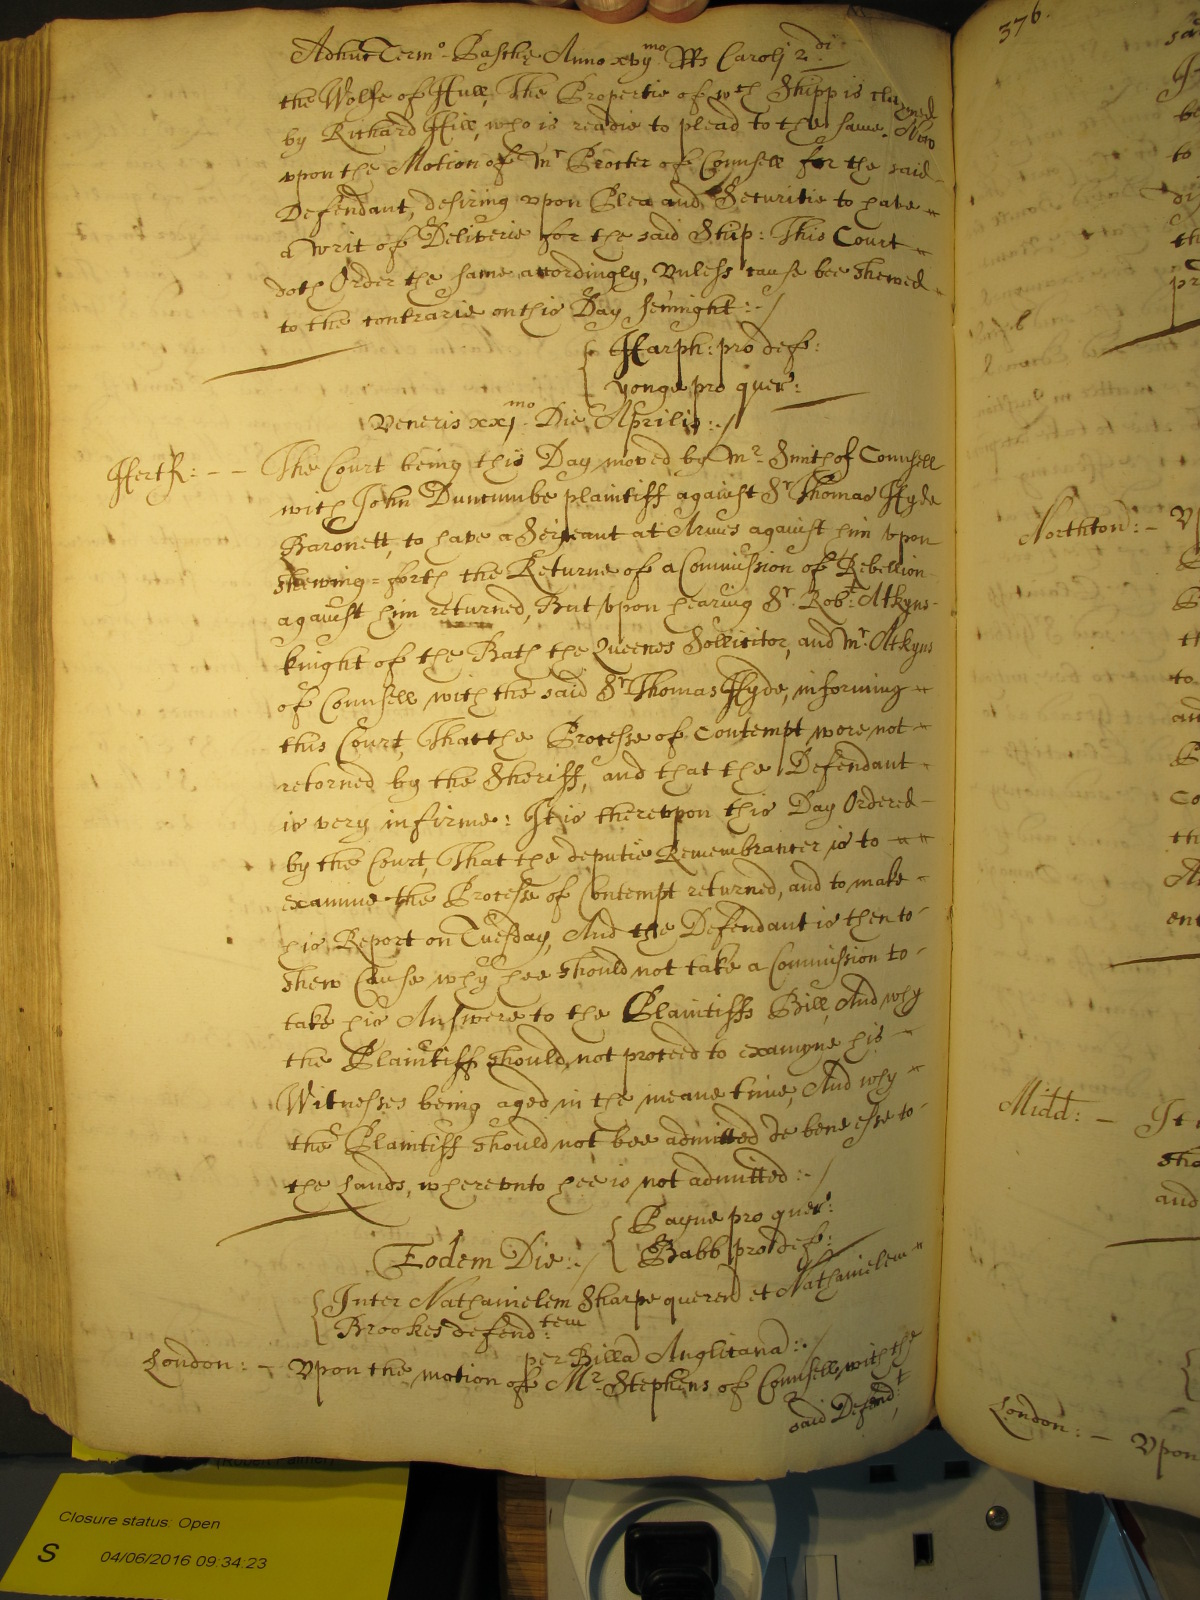 Adhuc Term:o Paschę Anno xvijmo R Rs Caroli 2.di
the Wolfe of Hull, The Propertie of wch Shipp is claymed
by Richard Hill, who is readie to plead to the same. Now
vpon the Motion of Mr Procter of Counsell for the said
Defendant, desiring vpon Plea and Securitie to have
a writ of Deliverie for the said Ship: This Court
doth Order the same accordingly, vnless cause bee shewed
to the contrarie on this Day sennight:-/
Harph: pro def:
Yonge pro quer:
Veneris xxjmo Die Aprilis:-/
HertR: - - The Court being this Day moved by Mr Smith of Counsell
with John Duncumbe plaintiff against Sr Thomas Hyde
Baronett, to have a Serjeant at Armes against him vpon
shewing=forth the Returne of a Commission of Rebellion
against him returned, But vpon hearing Sr Robt: Atkyns
knight of the Bath the Queenes Sollicitor, and Mr Atkyns
of Counsell with the said Sr Thomas Hyde, informing
this Court, That the Processe of Contempt were not
retorned by the Sheriff, and that the Defendant
is very infirme: It is therevpon this Day Ordered
by the Court, That the deputie Remembrancer is to
examine the Processe of Contempt returned, and to make
his Report on Tuesday, And the Defendant is then to
shew Cause why hee should not take a Commission to
take his Answere to the Plaintiffs Bill, And why
the Plaintiff should not proceed to examyne his
Witnesses being aged in the meane time, And why
the Plaintiff should not bee admitted de bene esse to
the lands, wherevnto hee is not admitted:-/
Payne pro quer:
Babb pro def:
Eodem Die:-/
Inter Nathanielem Sharpe querend et Nathanielem
Brookes defend:tem
per Billa Anglicana:-/
London: - Vpon the motion of Mr Stephens of Counsell with the
said Defend:t
376.
Northton: - Vp
Midd: - It
sho
and
London: - Vpon
Closure status: Open
S 04/06/2016 09:34:23